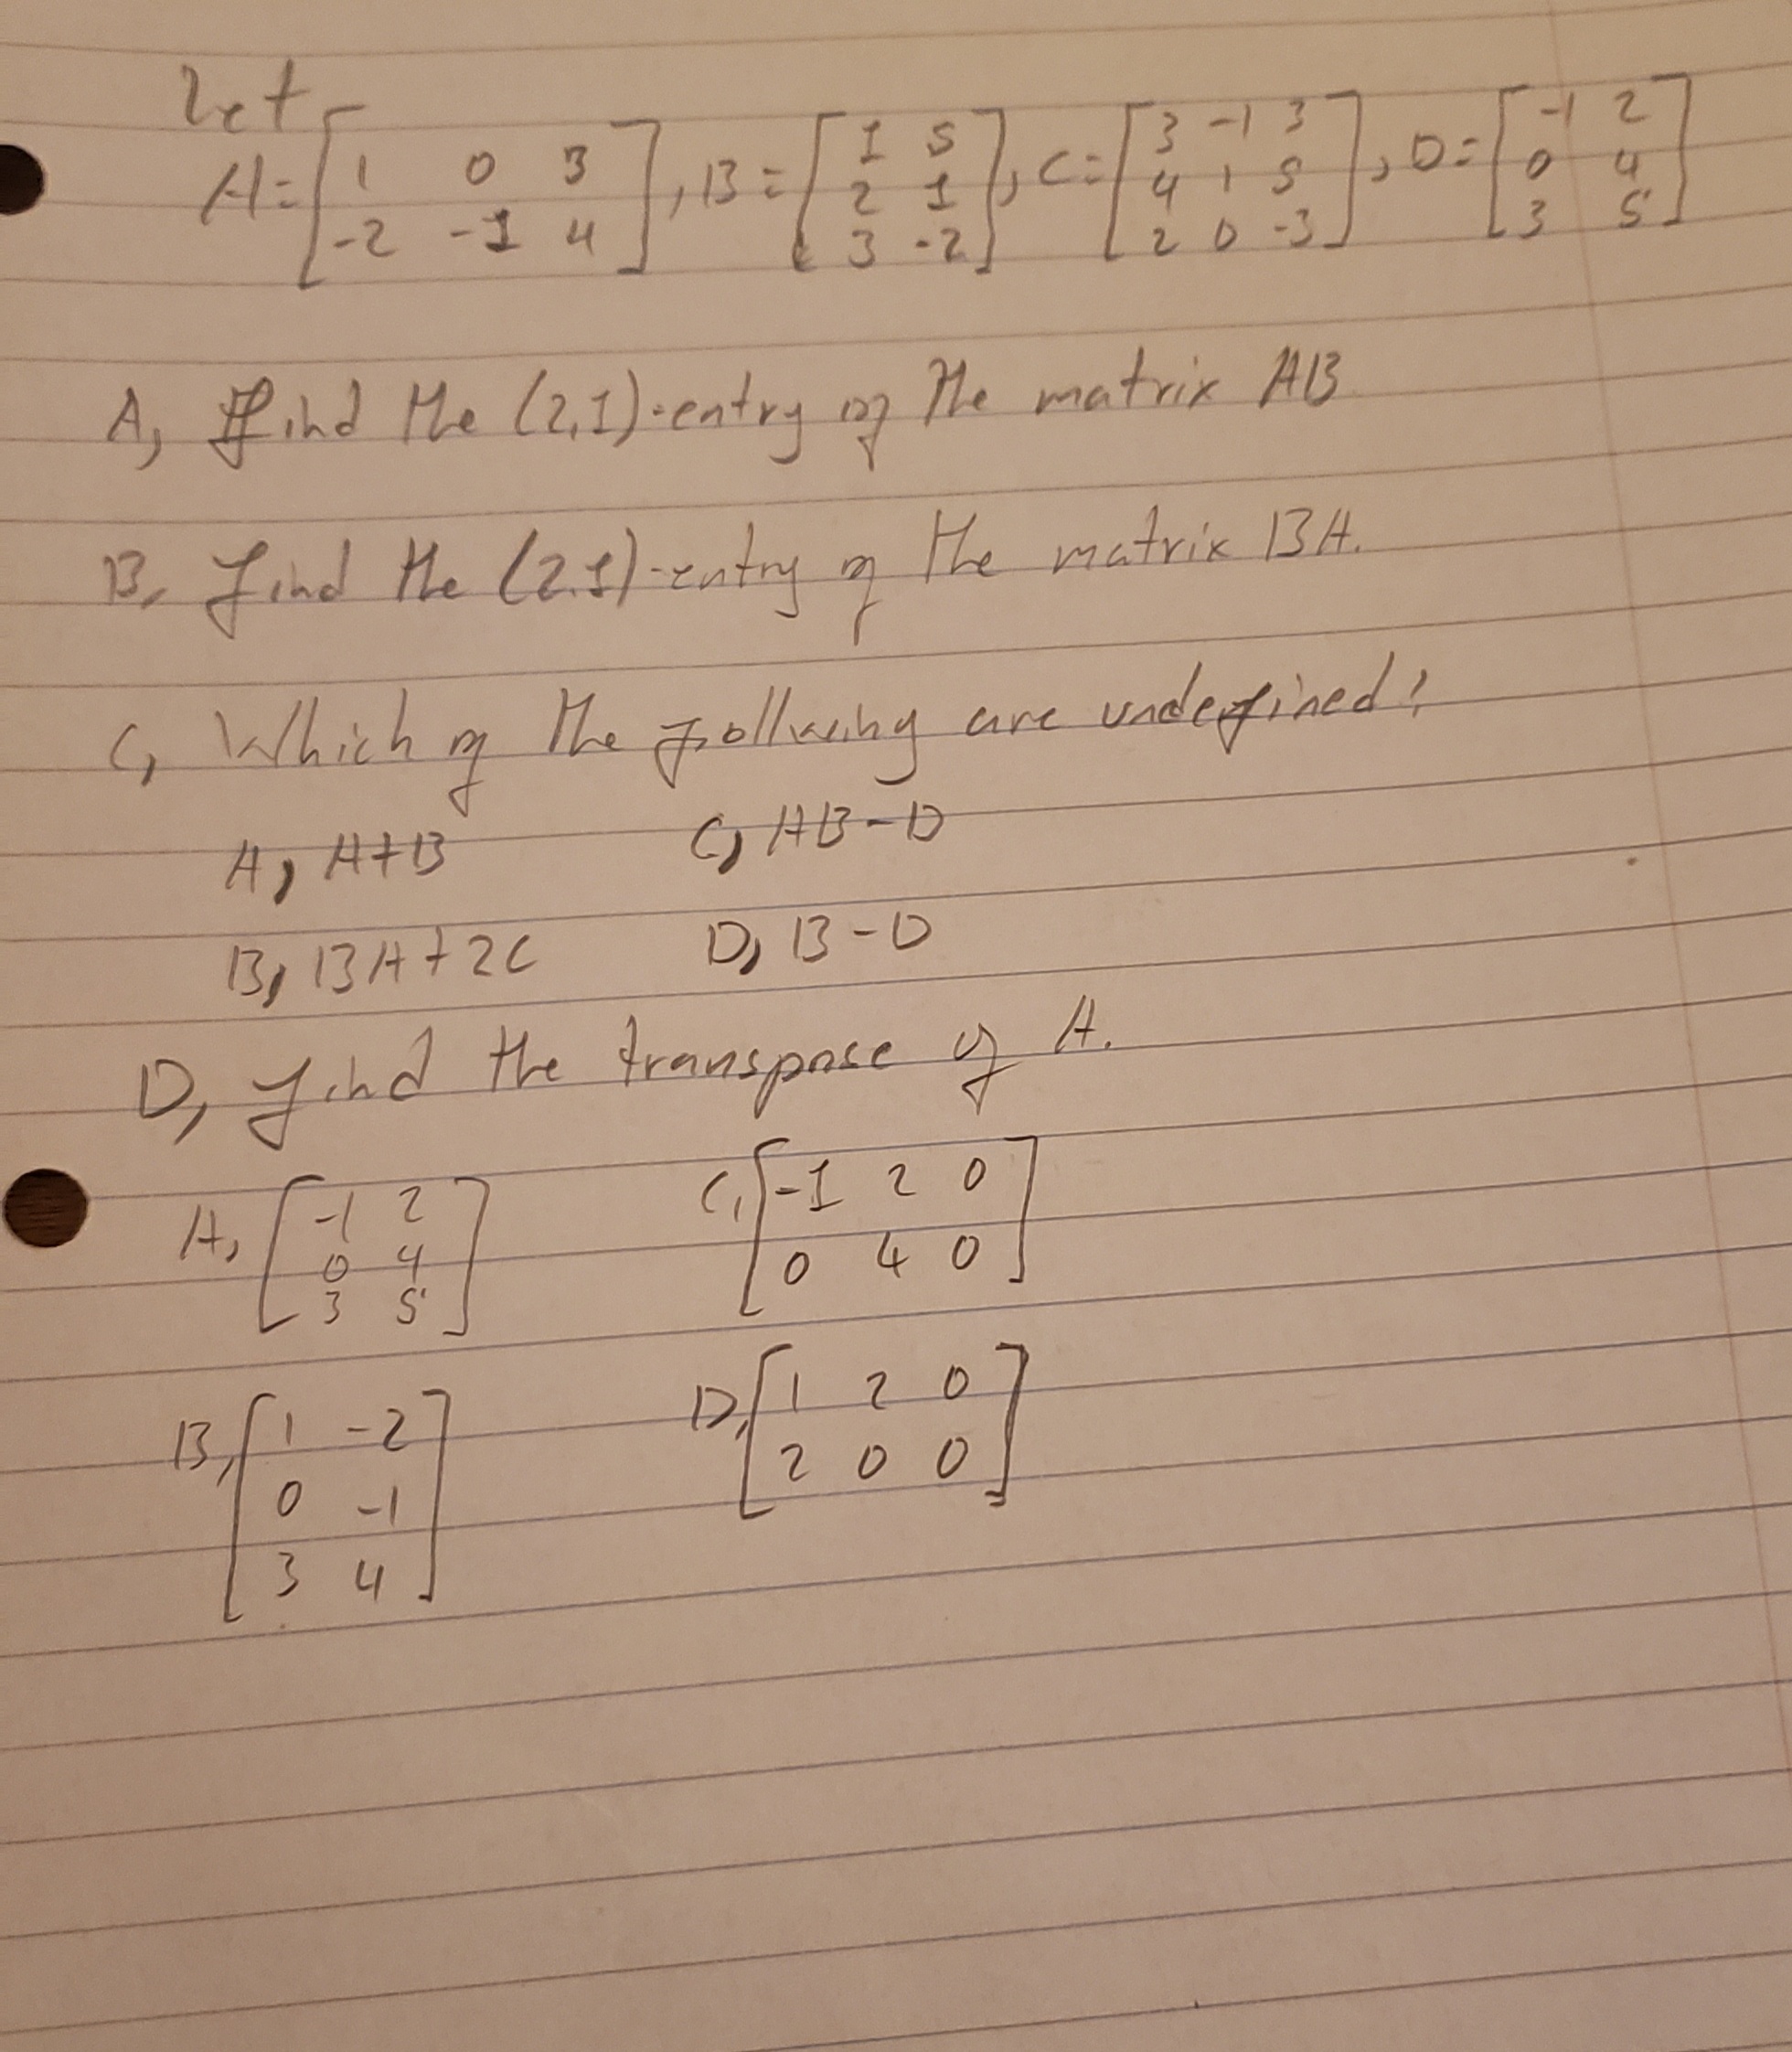 Let
A = [ 1 0 3 ; -2 -1 4 ], B = [ 1 5 ; 2 1 ; 3 -2 ], C = [ 3 -1 3 ; 4 1 5 ; 2 0 -3 ], D = [ -1 2 ; 0 4 ; 3 5 ]
A, Find the (2,1)-entry of the matrix AB
B, Find the (2.1)-entry of the matrix BA.
C, Which of the follwing are undefined?
A, A+B C, AB-D
B, BA+2C D, B-D
D, Find the transpose of A.
A, [ -1 2 ; 0 4 ; 3 5 ] C, [ -1 2 0 ; 0 4 0 ]
B, [ 1 -2 ; 0 -1 ; 3 4 ] D, [ 1 2 0 ; 2 0 0 ]